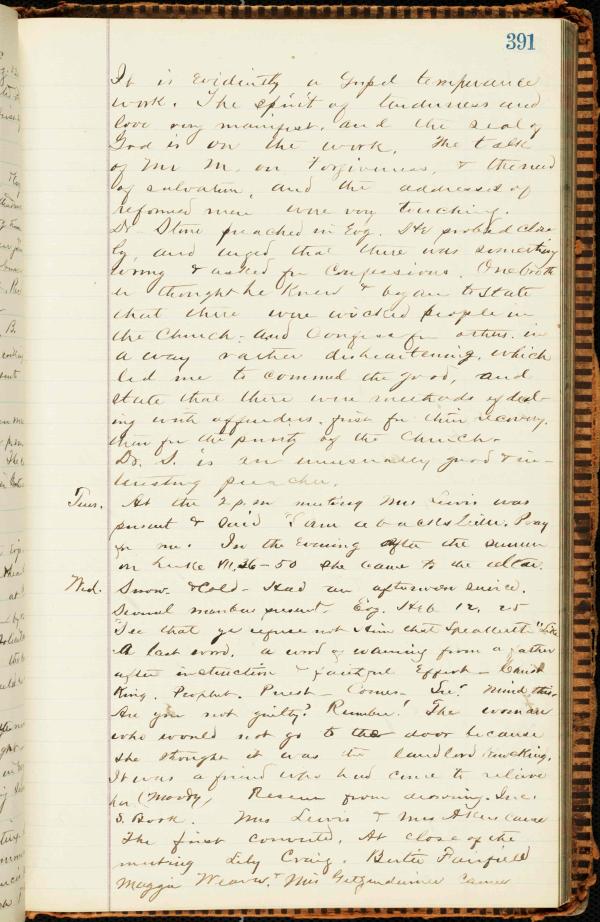 391
It is Evidintly a Gospel temperance
work. The spirit of tenderness and
love very manifest, and the seal of
God is on the work. The talk
of Mr M. on Forgiveness, & the need
of salvation, and the addresses of
reformed men were very touching.
Dr Stone preached in Evg. He probed close
ly, and urged that there was something
wrong & asked for Confessions. One broth
er thought he knew & began to state
that there were wicked people in
the Church. and Confess for others. in
a way rather disheartening, which
led me to commend the good, and
state that there were methods of deal-
ing with offenders. first for their recovery.
then for the purity of the Church.
Dr. S. is an unusually good & in-
teresting preacher.
Tues. At the 2 p.m meeting Mrs Lewis was
present & said "I am a backslider. Pray
for me. In the Evening after the sermon
on Luke 26-50 she came to the altar.
Wed. Snow. & Cold - Had an afternoon service.
Several present. Evg. Heb 12, 25
"See that ye refuse not Him that Speaketh"
A last word. a word of warning from a father
after instruction & faithful Effort - Christ
King. Prophet. Priest - Comes - See! Mind this.
Are you not guilty? Remember! The woman
who would not go to the door because
she thought it was the landlord knocking.
It was a friend who had come to relieve
her (Moody) Rescue from drowning.
S. Book. Mrs Lewis & Mrs Akers came
The first converted. At close of the
meeting Lily Craig. Bertie Fairfield
Maggie Weaver. & Mrs Getzendiner came